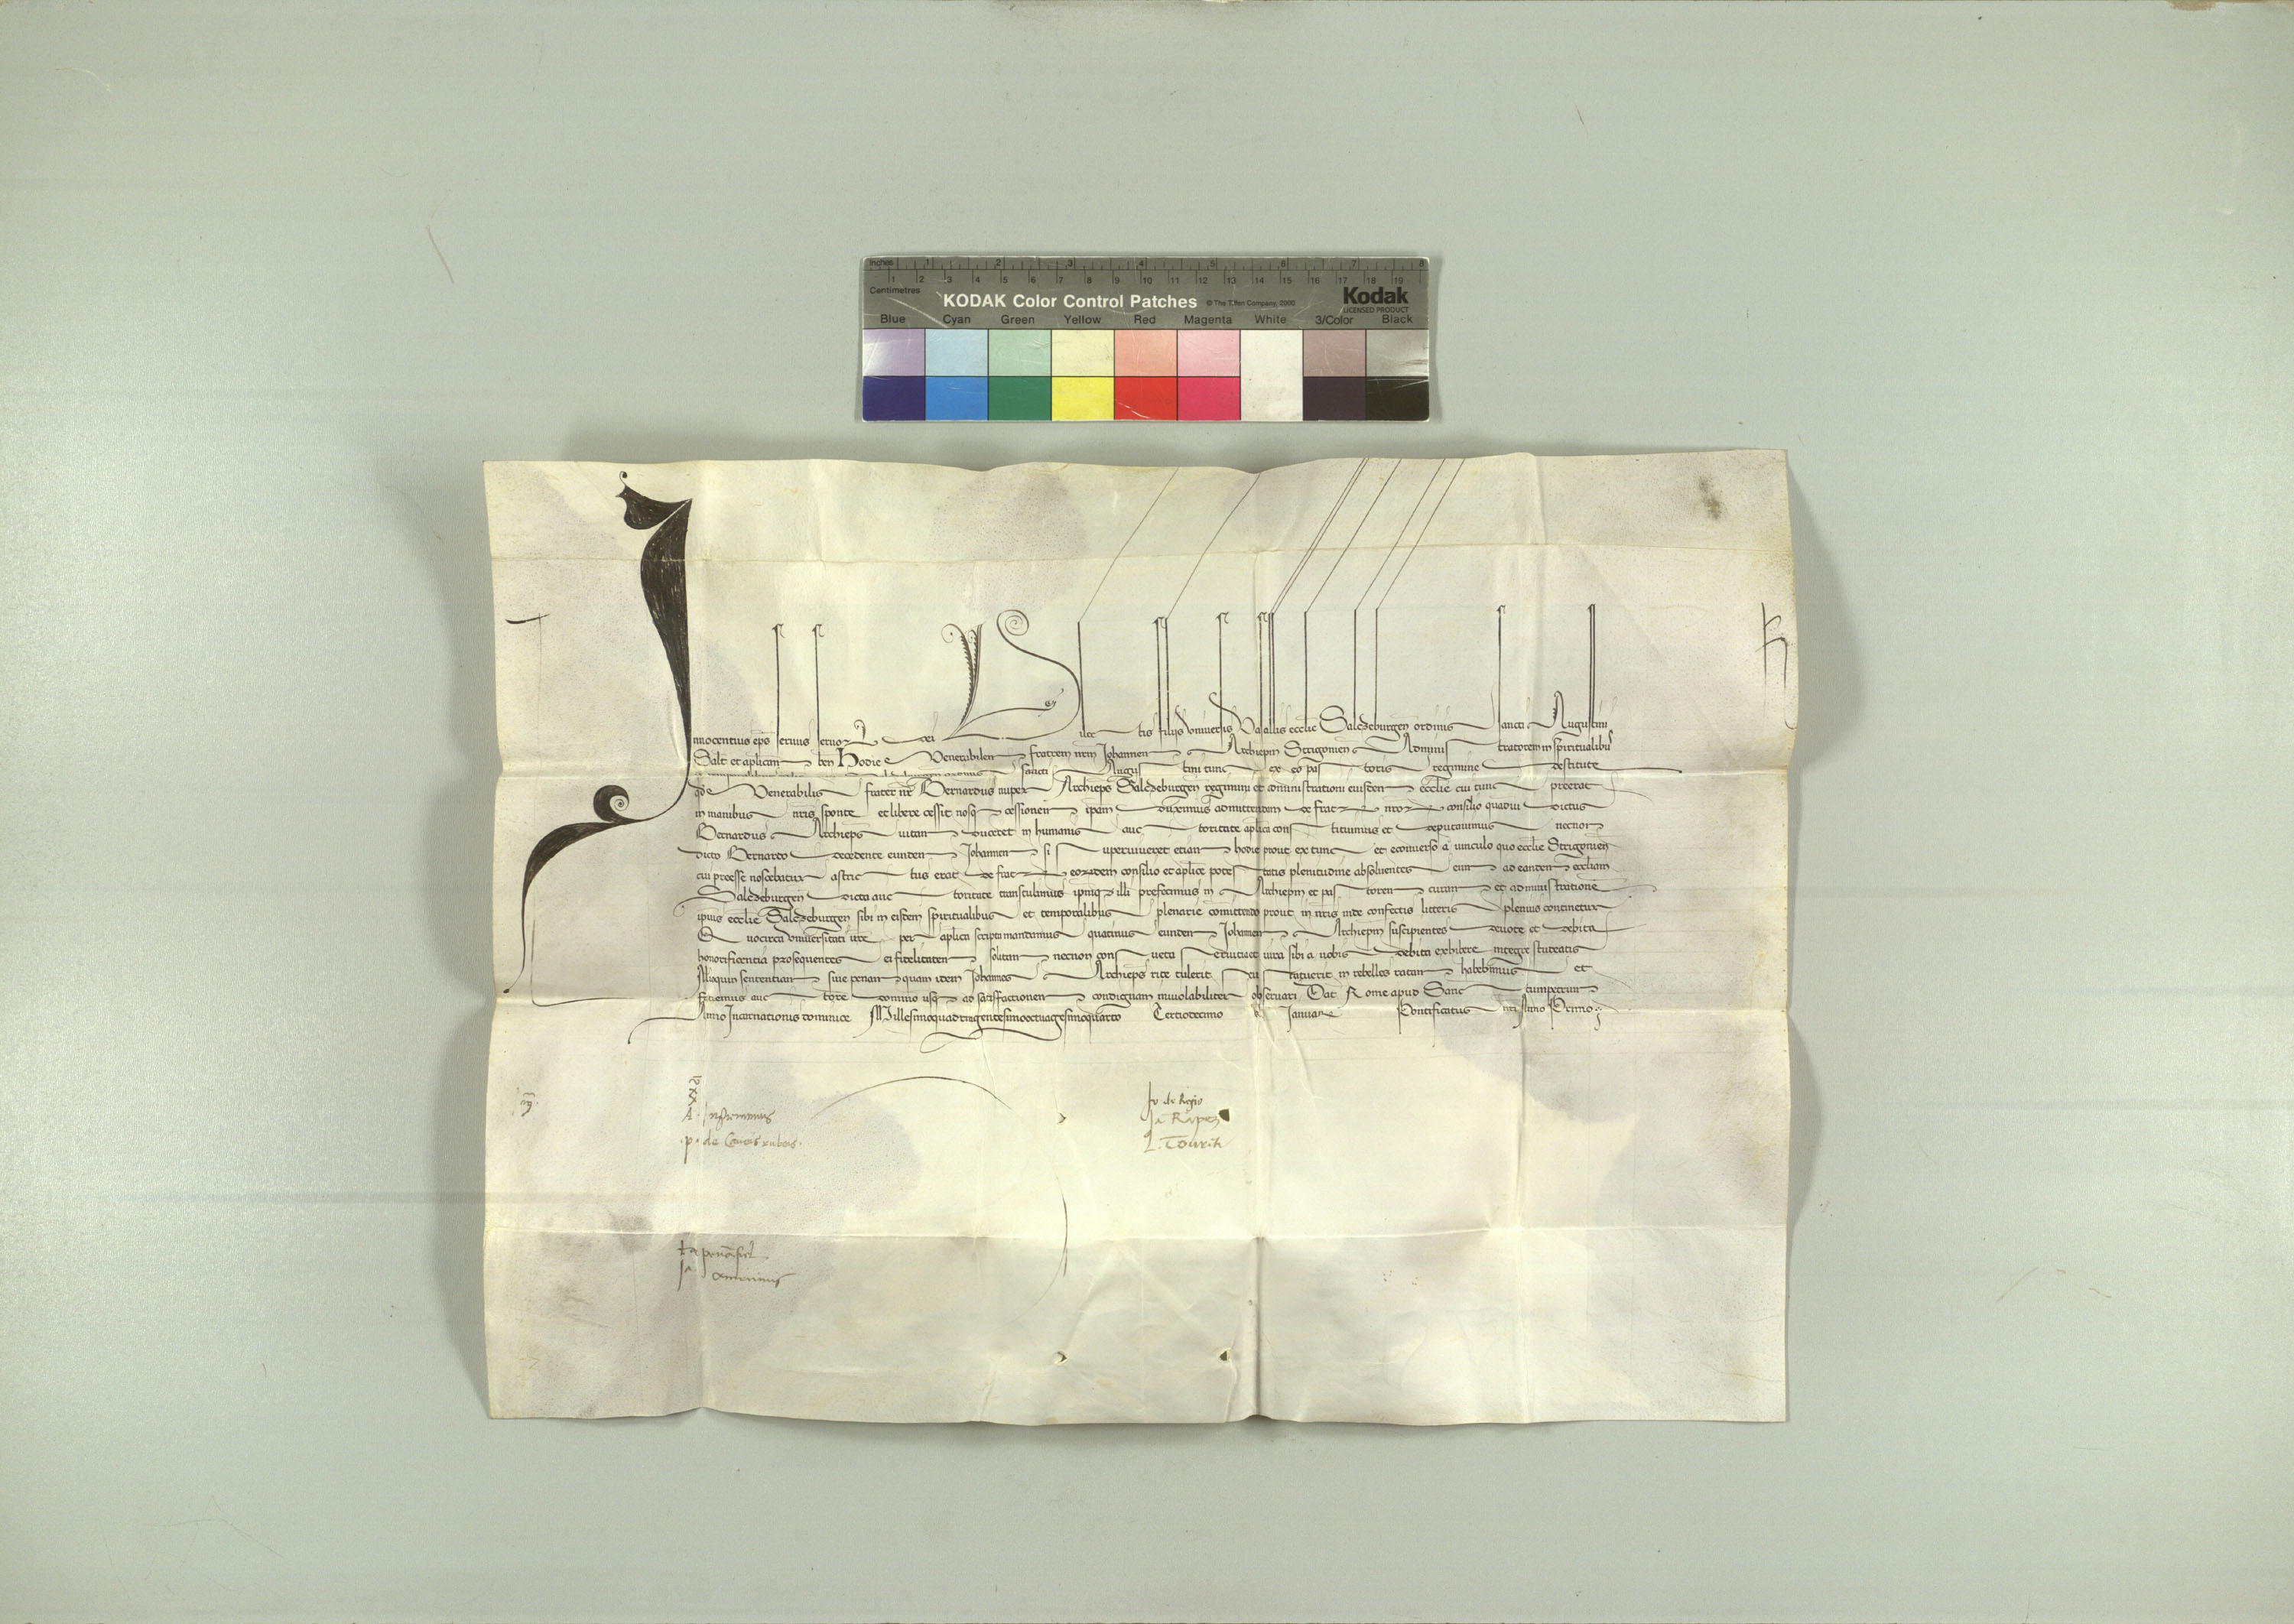 Inches 1 2 3 4 5 6 7 8
1 2 3 4 5 6 7 8 9 10 11 12 13 14 15 16 17 18 19
Centimetres
KODAK Color Control Patches © The Tiffen Company, 2000 Kodak
LICENSED PRODUCT
Blue Cyan Green Yellow Red Magenta White 3/Color Black
Innocentius eps seruus seruor dei Dilectis filijs Vniuersis Vasallis ecclie Saltzeburgen ordinis sancti Augustini
Salt et aplicam ben Hodie Venerabilem fratrem nrm Johannem Archiepm Strigonien Administratorem in spiritualibus
sancti Augustini tunc ex eo pastoris regimine destitute
qd Venerabilis frater nr Bernardus nuper Archieps Saltzeburgen regimini et administrationi eiusdem ecclie cui tunc preerat
in manibus nris sponte et libere cessit nosq cessionem ipam duximus admittendam de fratr nror consilio quadiu dictus
Bernardus Archieps uitam duceret in humanis auctoritate aplica constituimus et deputauimus necnon
dicto Bernardo decedente eundem Johannem si superuiueret etiam hodie prout ex tunc et econuerso a uinculo quo ecclie Strigonien
cui preesse noscebatur astrictus erat de fratr eorundem consilio et aplice potestatis plenitudine absoluentes eum ad eandem eccliam
Saltzeburgen dicta auctoritate transtulimus ipmq illi prefecimus in Archiepm et pastorem curam et administrationē
ipius ecclie Saltzeburgen sibi in eisdem spiritualibus et temporalibus plenarie comittendo prout in nris inde confectis litteris plenius continetur
Quocirca vniuersitati vre per aplica scripta mandamus quatinus eundem Johannem Archiepm suscipientes deuote et debita
honorificentia prosequentes ei fidelitatem solitam necnon consueta seruitia et iura sibi a uobis debita exhibere integre studeatis
Alioquin sententiam siue penam quam idem Johannes Archieps rite tulerit seu statuerit in rebelles ratam habebimus et
faciemus auctore domino usq ad satisfactionem condignam inuiolabiliter obseruari Dat Rome apud Sanctumpetrum
Anno Incarnationis dominice Millesimoquadringentesimooctuagesimoquarto Tertiodecimo kl Januarii Pontificatus nri Anno Primo
Jo de Regio